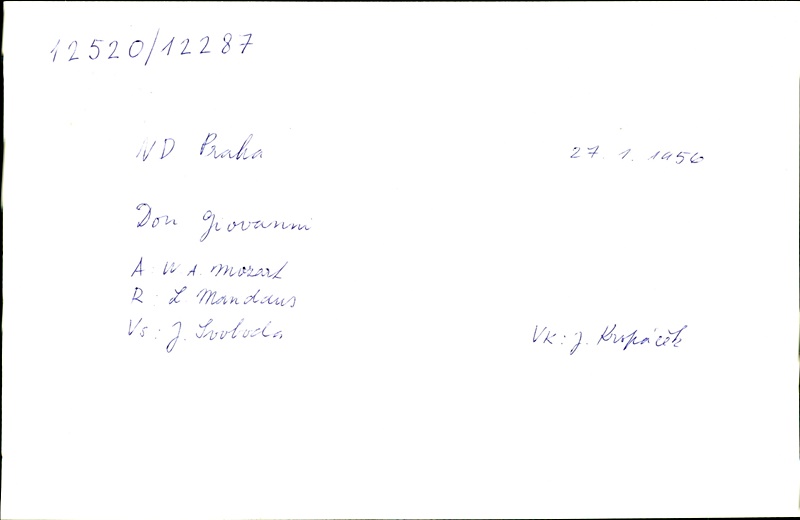 12520/12287
ND Praha 27. 1. 1956
Don Giovanni
A: W. A. Mozart
R: L. Mandaus
Vs: J. Svoboda Vk: J. Kropáček